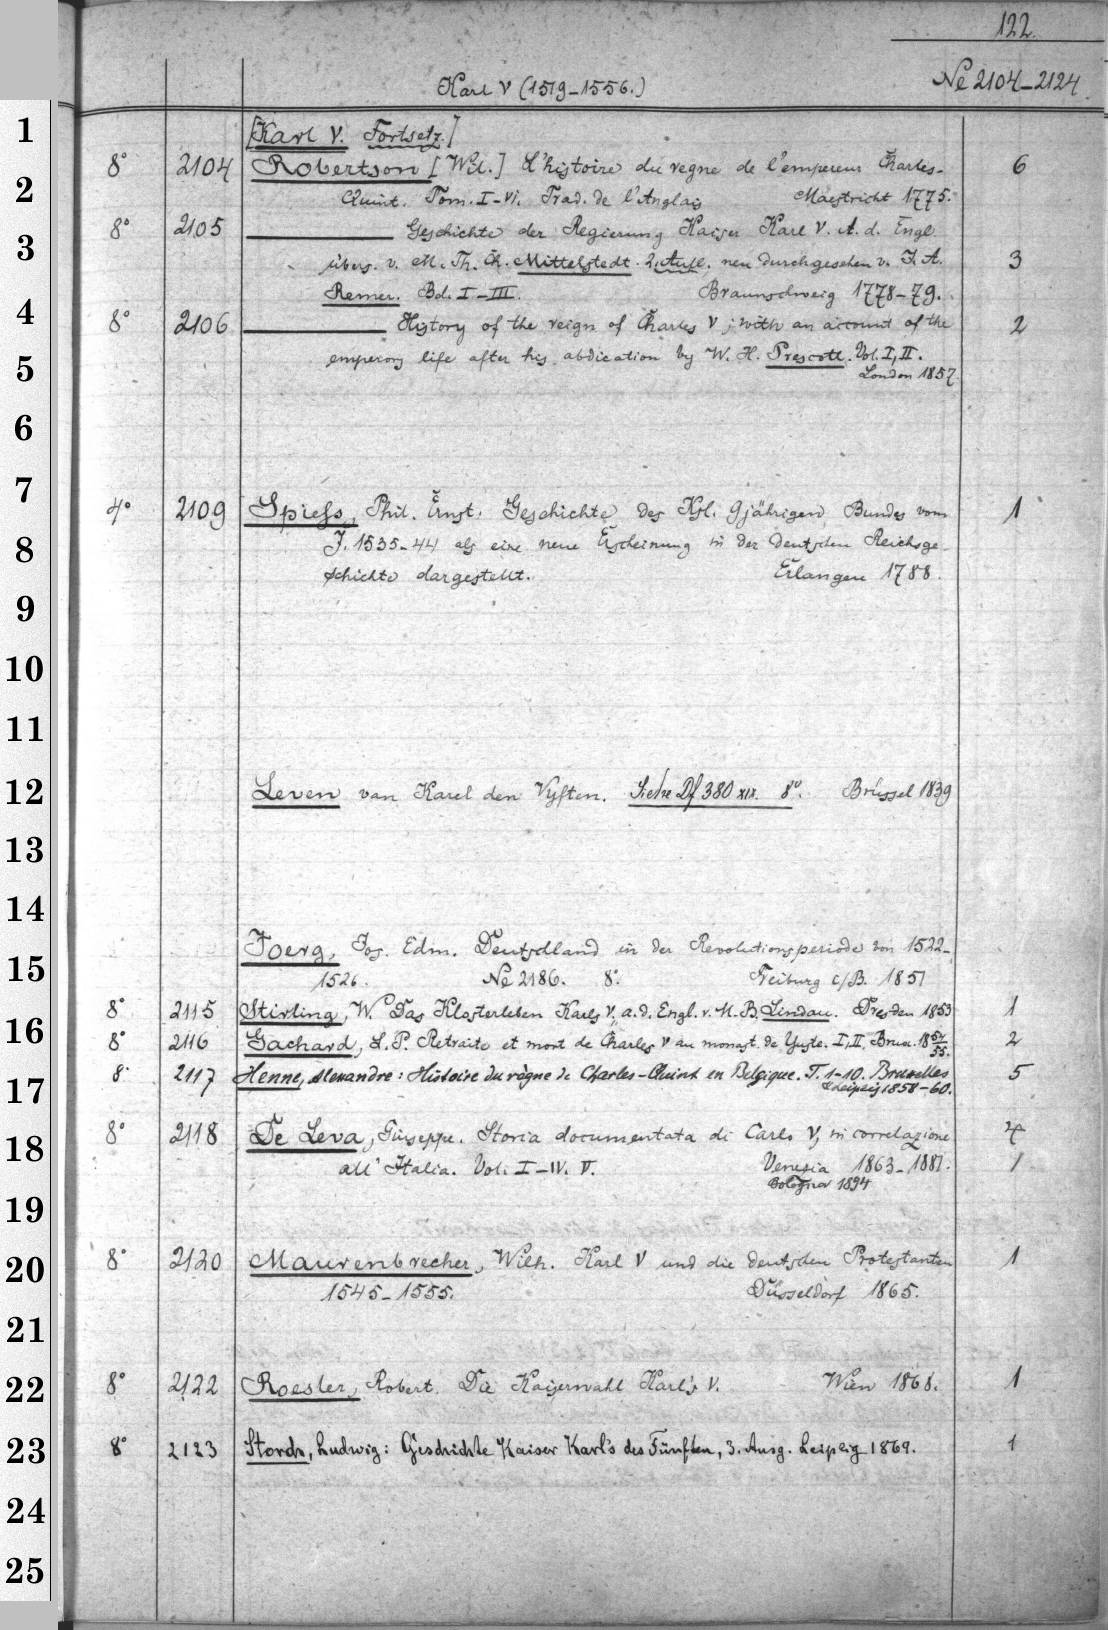 122.
Karl V (1519-1556.) № 2104-2124
1
[Karl V. Fortsetz.]
8° 2104 Robertson [Wil.] L'histoire du regne de l'empereur Charles- 6
2
Quint. Tom. I-VI. Trad. de l'Anglais Maestricht 1775.
8° 2105 ——— Geschichte der Regierung Kaiser Karl V. A. d. Engl.
3
übers. v. M. Th. Ch. Mittelstedt. 2. Aufl. neu durchgesehen v. J. A. 3
Remer. Bd. I-III. Braunschweig 1778-79.
4
8° 2106 ——— History of the reign of Charles V; with an account of the 2
emperors life after his abdication by W. H. Prescott. Vol. I, II.
5
London 1857.
6
7
4° 2109 Spiess, Phil. Ernst. Geschichte des Ksl. 9jährigen Bundes vom 1
8
J. 1535-44 als eine neue Erscheinung in der deutschen Reichsge-
schichte dargestellt. Erlangen 1788.
9
10
11
12
Leven van Karel den Vyften. Siehe Df 380 XIX. 8°. Brüssel 1839
13
14
Joerg, Jos. Edm. Deutschland in der Revolutionsperiode von 1522-
15
1526. № 2186. 8°. Freiburg i/B. 1851
8° 2115 Stirling, W. Das Klosterleben Karls V. a. d. Engl. v. M. B. Lindau. Dresden 1853 1
16
8° 2116 Gachard, L. P. Retraite et mort de Charles V au monast. de Yuste. I, II. Brux. 1854/55. 2
8. 2117 Henne, Alexandre: Histoire du règne de Charles-Quint en Belgique. T. 1-10. Bruxelles 5
17
& Leipzig 1858-60.
8° 2118 De Leva, Giuseppe. Storia documentata di Carlo V, in correlazione 4
18
all' Italia. Vol. I-IV. V. Venezia 1863-1881. 1
Bologna 1894
19
8° 2120 Maurenbrecher, Wilh. Karl V und die deutschen Protestanten 1
20
1545-1555. Düsseldorf 1865.
21
22
8° 2122 Roesler, Robert. Die Kaiserwahl Karl's V. Wien 1868. 1
23
8° 2123 Storch, Ludwig: Geschichte Kaiser Karl's des Fünften, 3. Ausg. Leipzig 1869. 1
24
25